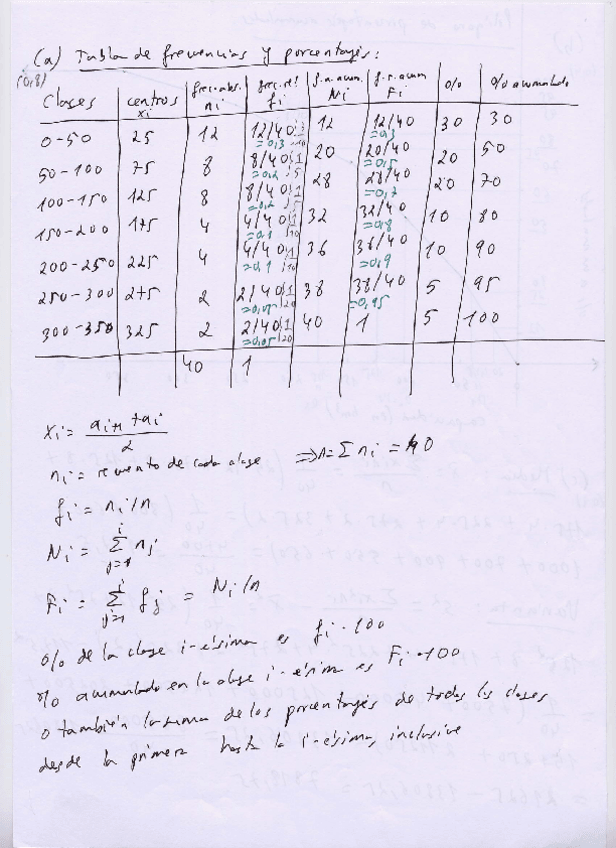 (a) Tabla de frecuencias y porcentajes:
(0,8)
Clases centros xi frec. abs. ni frec. rel. fi f. a. acum. Ni f. r. acum. Fi % % acumulado
0-50 25 12 12/40 =0,3 12 12/40 =0,3 30 30
50-100 75 8 8/40 =0,2 20 20/40 =0,5 20 50
100-150 125 8 8/40 =0,2 28 28/40 =0,7 20 70
150-200 175 4 4/40 =0,1 32 32/40 =0,8 10 80
200-250 225 4 4/40 =0,1 36 36/40 =0,9 10 90
250-300 275 2 2/40 =0,05 38 38/40 =0,95 5 95
300-350 325 2 2/40 =0,05 40 1 5 100
40 1
xi = (ai+1 + ai)/2
ni = recuento de cada clase ⇒ n = Σ ni = 40
fi = ni/n
Ni = Σ j=1 i nj
Fi = Σ j=1 i fj = Ni/n
% de la clase i-ésima es fi · 100
% acumulado en la clase i-ésima es Fi · 100
o también la suma de los porcentajes de todas las clases
desde la primera hasta la i-ésima, inclusive